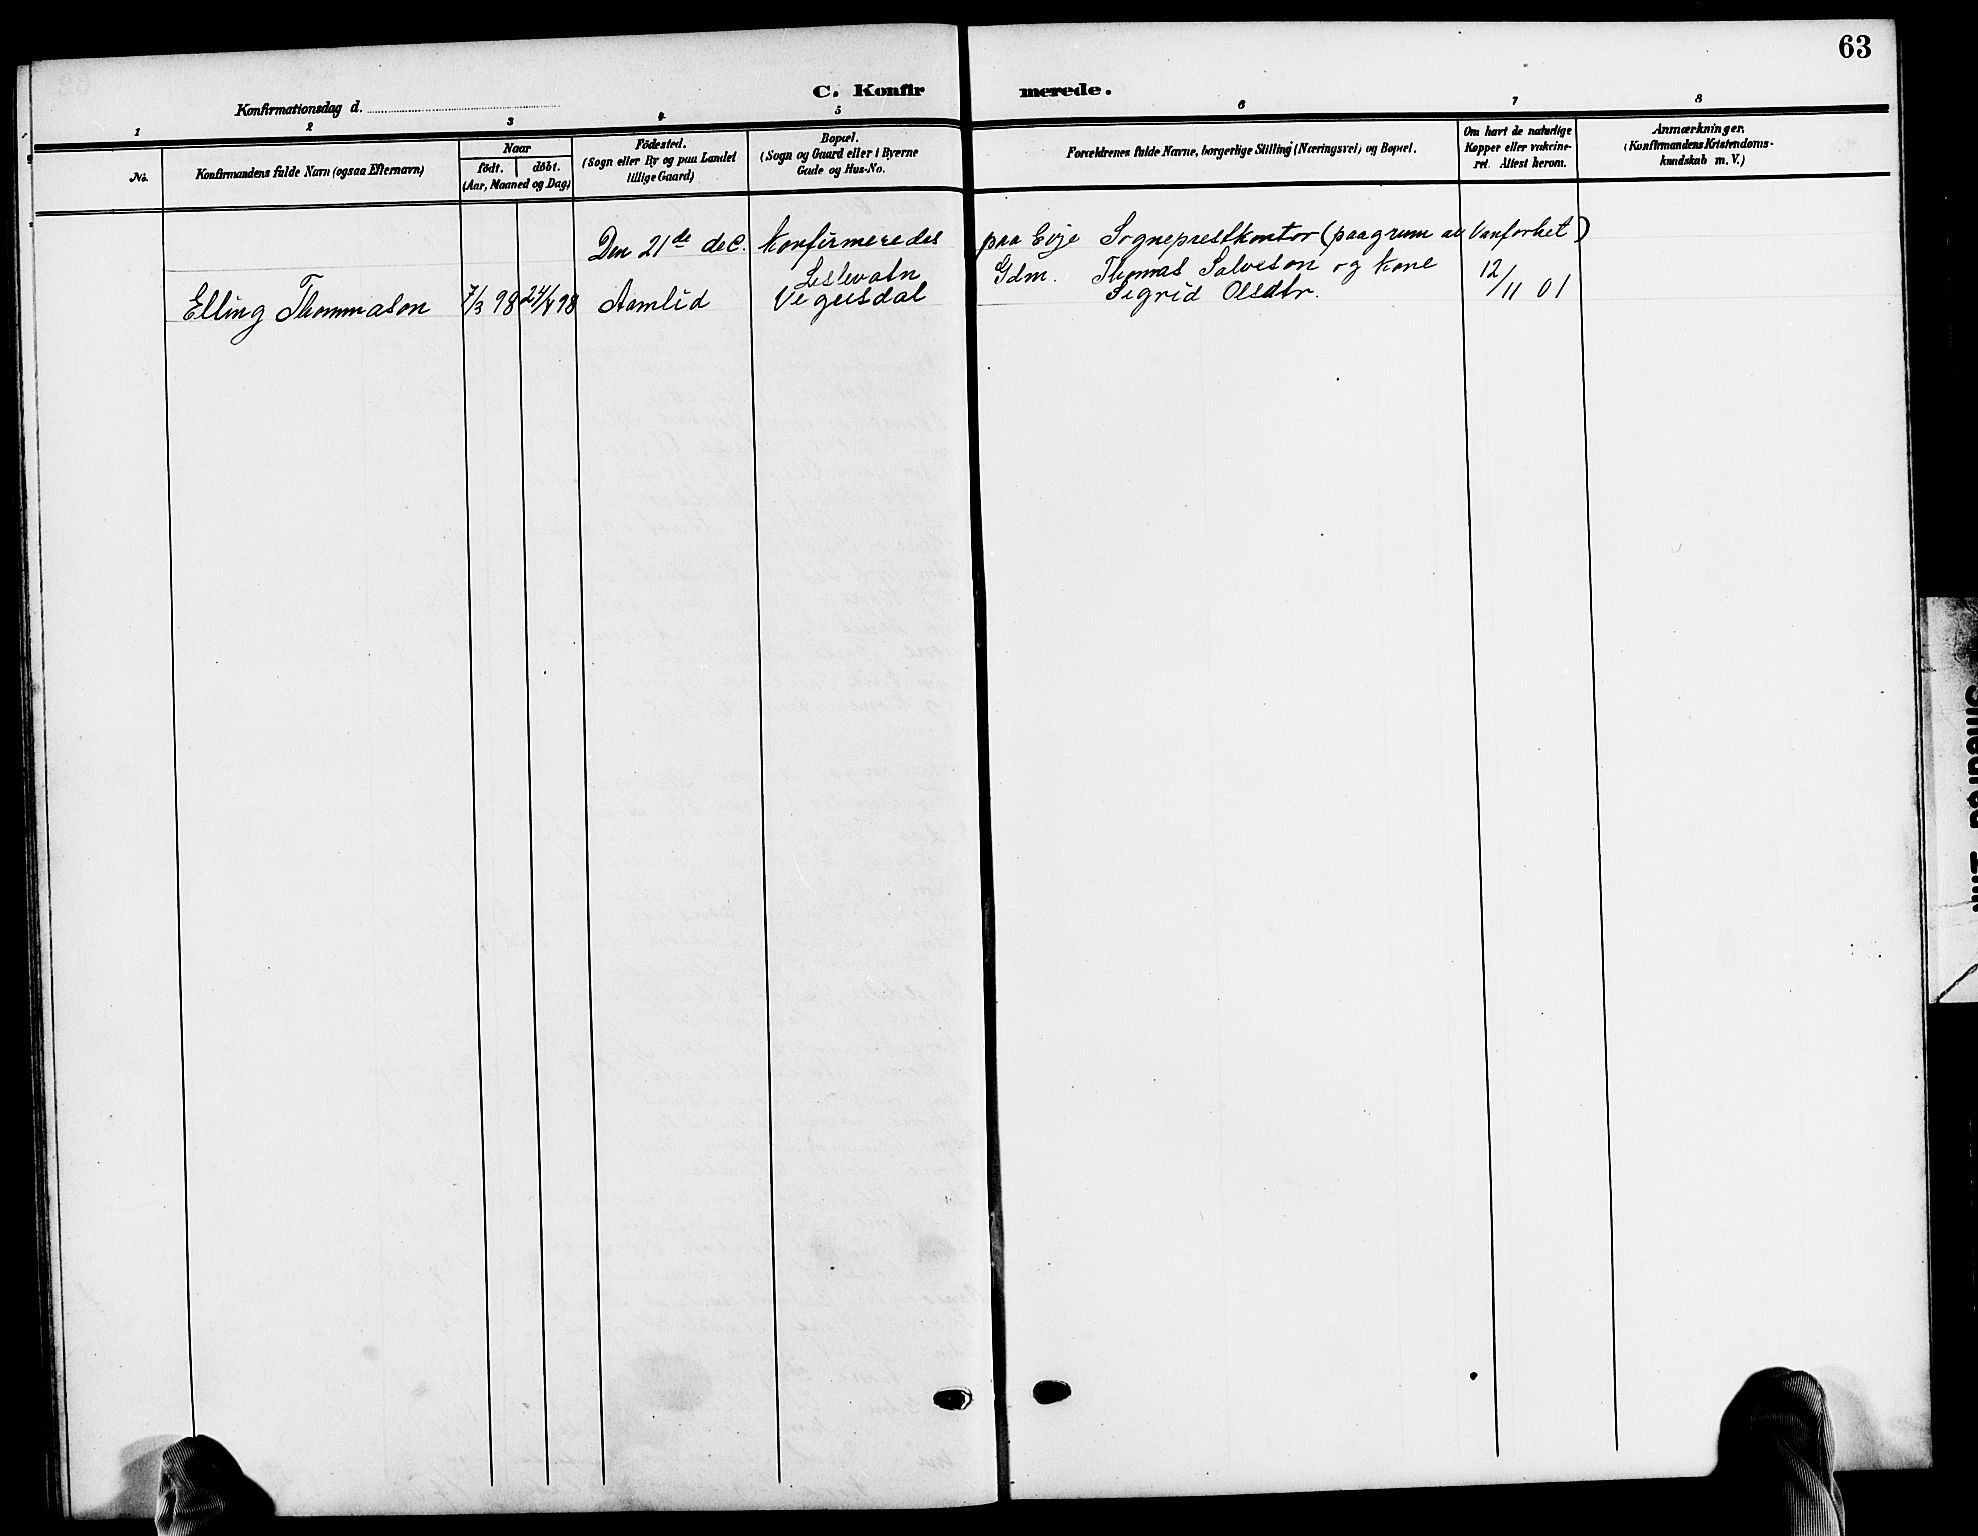 63
C. Konfirmerede.
Konfirmationsdag d.
1 2 3 4 5 6 7 8
No.
Konfirmandens fulde Navn (ogsaa Efternavn)
Naar
födt. döbt.
(Aar, Maaned og Dag)
Födested.
(Sogn eller By og paa Landet
tillige Gaard)
Bopæl.
(Sogn og Gaard eller i Byerne
Gade og Hus-No.
Forældrenes fulde Navne, borgerlige Stilling (Næringsvei) og Bopæl.
Om havt de naturlige
Kopper eller vakcine-
ret. Attest herom.
Anmærkninger.
(Konfirmandens Kristendoms-
kundskab m. V.)
Den 21de dec. Konfirmeredes paa Evje Sogneprestkontor (paagrunn av Vanforhet)
Elling Thommason 7/3 98 24/4 98 Aamlid
Lislevatn
Vegusdal
Gdm. Thomas Salveson og Kone
Sigrid Olsdtr.
12/11 01